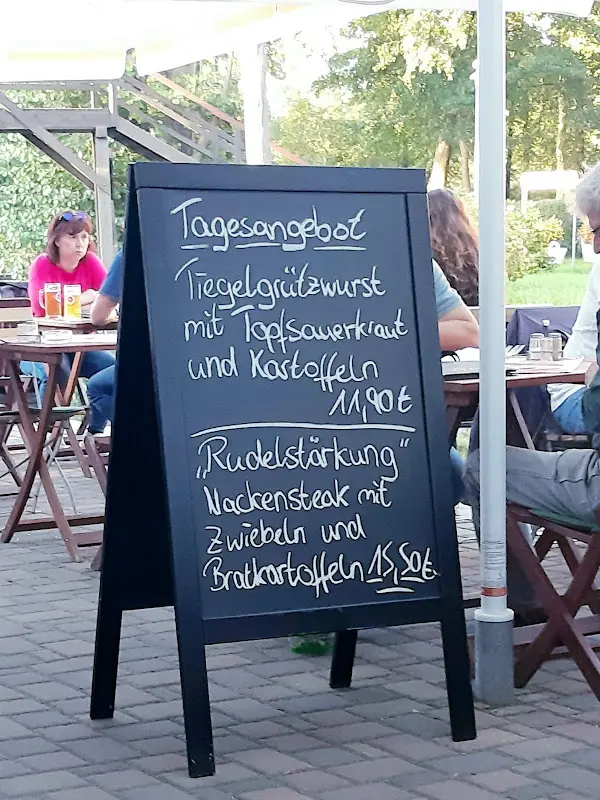 Tagesangebot
Tiegelgrützwurst
mit Topfsauerkraut
und Kartoffeln
11,90 €
„Rudelstärkung“
Nackensteak mit
Zwiebeln und
Bratkartoffeln 15,50 €